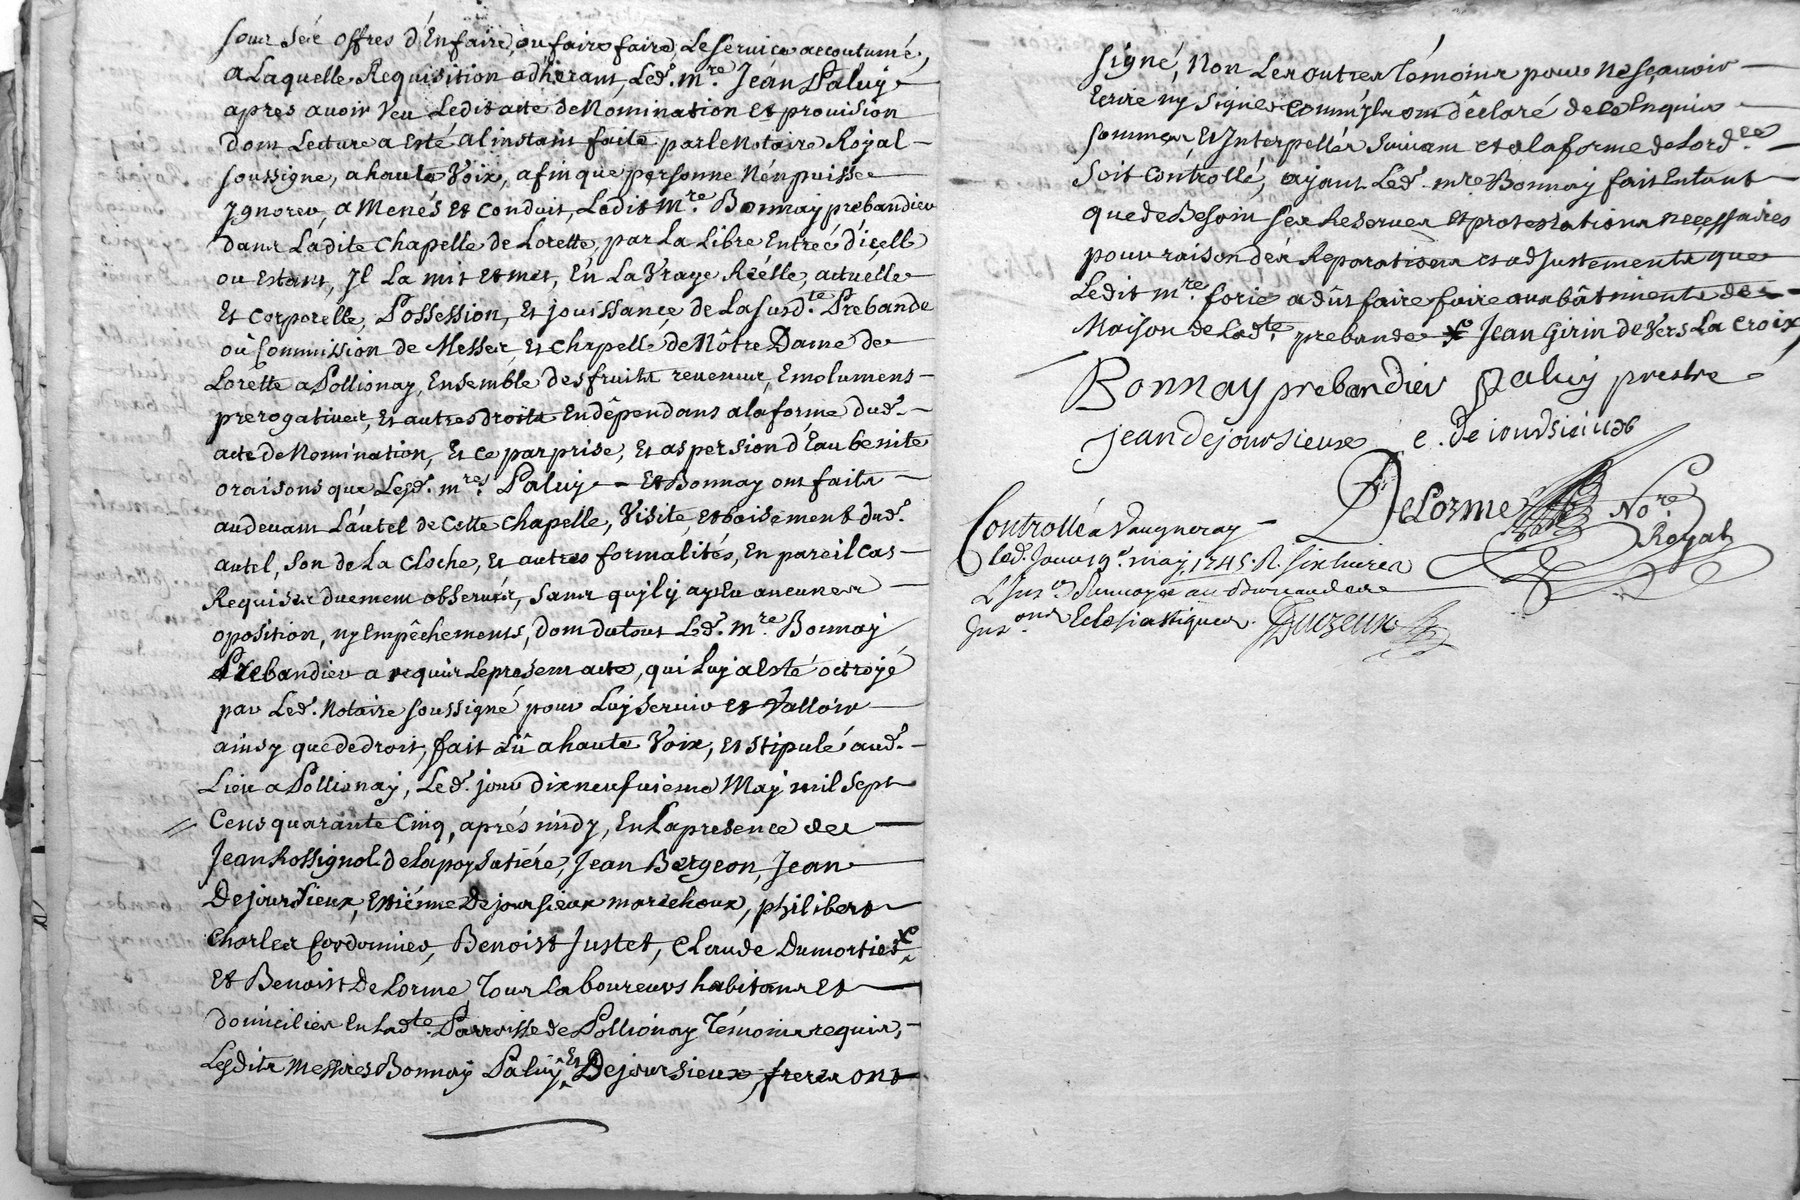 sous séé offres d'En faire, ou faire faire, Le Service accoutumé,
a Laquelle Requisition adhérant, Led. mre. Jean Paluy
apres avoir Veu Ledit acte de Nomination Et provision
dont Lecture a Esté a l'instant faite par le Notaire Royal
soussigné, a haute Voix, afin que personne N'en puisse
Ignorer, a Menés Et Conduit, Ledit Mre. Bonnay prebandier
dans Ladite Chapelle de Lorette, par La Libre Entreé d'icelle
ou Estant, Il La mit et met, En La Vraye Réélle, actuelle
Et Corporelle, Possession, Et jouissance de La susdte. Prebande
où Commission de Messes, Et Chapelle de Nôtre Dame de
Lorette a Pollionay, Ensemble des fruits revenus, Emolumens
prerogatives, Et autres droits En dépendans a la forme dud.
acte de Nomination, Et ce par prise, Et aspersion d'Eau benite
oraisons que Lesd. mres. Paluy Et Bonnay ont faits
au devant L'autel de Cette Chapelle, Visite, et baisement dud.
autel, Son de La Cloche, Et autres formalités, En pareil Cas
Requises duement observés, Sans qu'il y aye Eu aucunes
oposition, ny Empêchements, dont du tout Led. Mre. Bonnay
Prebandier a requis Le present acte, qui Luy a Esté octroyé
par Led. Notaire soussigné pour Luy Servir et Valloir
ainsy que de droit, fait Lû a haute Voix, Et stipulé aud.
Lieu a Pollionay, Led. jour dixneufvieme May mil Sept
Cens quarante Cinq, aprés midy, En La presence de
Jean Rossignol de La poysatiére, Jean Bergeon, Jean
Dejoursieux, Estiénne Dejoursieux marechaux, philibert
Charles Cordonnier, Benoist Justet, Claude Dumortier
Et Benoist DeLorme, Tous Laboureurs habitans Et
domiciliés En Ladte. Parroisse de Pollionay Témoins requis,
Lesdits Messires Bonnay Paluy Et Dejoursieux freres ont
signé, Non Les autres Témoins pour Ne sçavoir
Ecrire ny Signer comm'ils ont déclaré de ce Enquis
Sommés Et Interpellés Suivant et a la forme de Lordce.
Soit Contrôllé, ayant Led. mre. Bonnay fait Entant
que de Besoin Ses Reserves Et protestations necessaires
pour raison dés Reparations et adjustements que
Ledit mre. forie a dût faire faire aux bâtiments de
Maison de Ladte. prebande x Jean Girin de Vers La Croix
Bonnay prebandier Paluy prestre
jean dejoursieux e. de jourdsieiux
DeLorme Nore.
Royal
Controllé a Vaugneray
led. Jour 19e. may 1745. R. six livres
Eclésiastiques. Duzeun